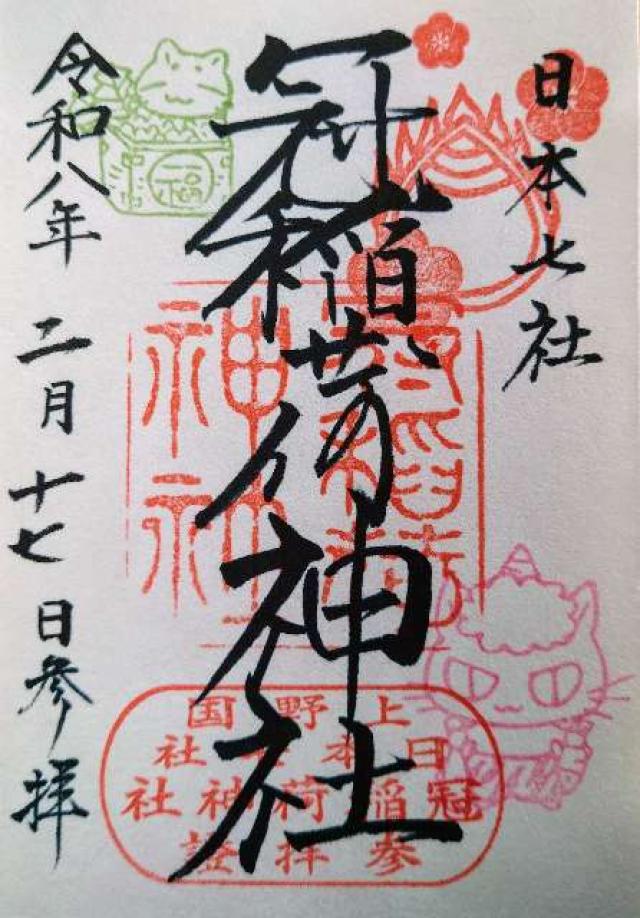 日本七社
冠稲荷神社
令和八年 二月 十七日参拝
福
冠稲荷
神社
上野国
日本七社
冠稲荷神社
参拝證